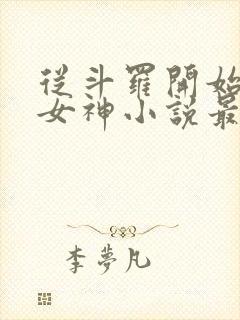 從斗羅開始
女神小說最
李夢凡